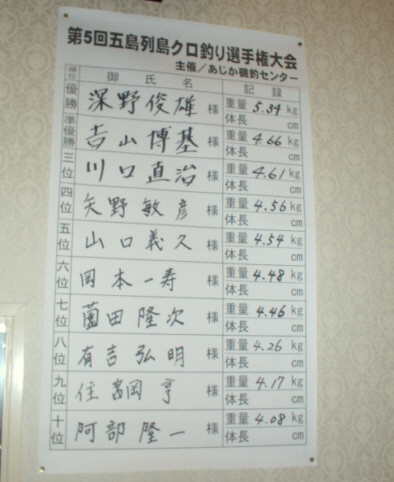 第5回五島列島クロ釣り選手権大会
主催／あじか磯釣センター
順位 御氏名 記録
優勝 深野俊雄 様 重量 5.34 kg
体長 cm
準優勝 吉山博基 様 重量 4.66 kg
体長 cm
三位 川口直治 様 重量 4.61 kg
体長 cm
四位 矢野敏彦 様 重量 4.56 kg
体長 cm
五位 山口義久 様 重量 4.54 kg
体長 cm
六位 岡本一寿 様 重量 4.48 kg
体長 cm
七位 薗田隆次 様 重量 4.46 kg
体長 cm
八位 有吉弘明 様 重量 4.26 kg
体長 cm
九位 住 岡 亨 様 重量 4.17 kg
体長 cm
十位 阿部隆一 様 重量 4.08 kg
体長 cm